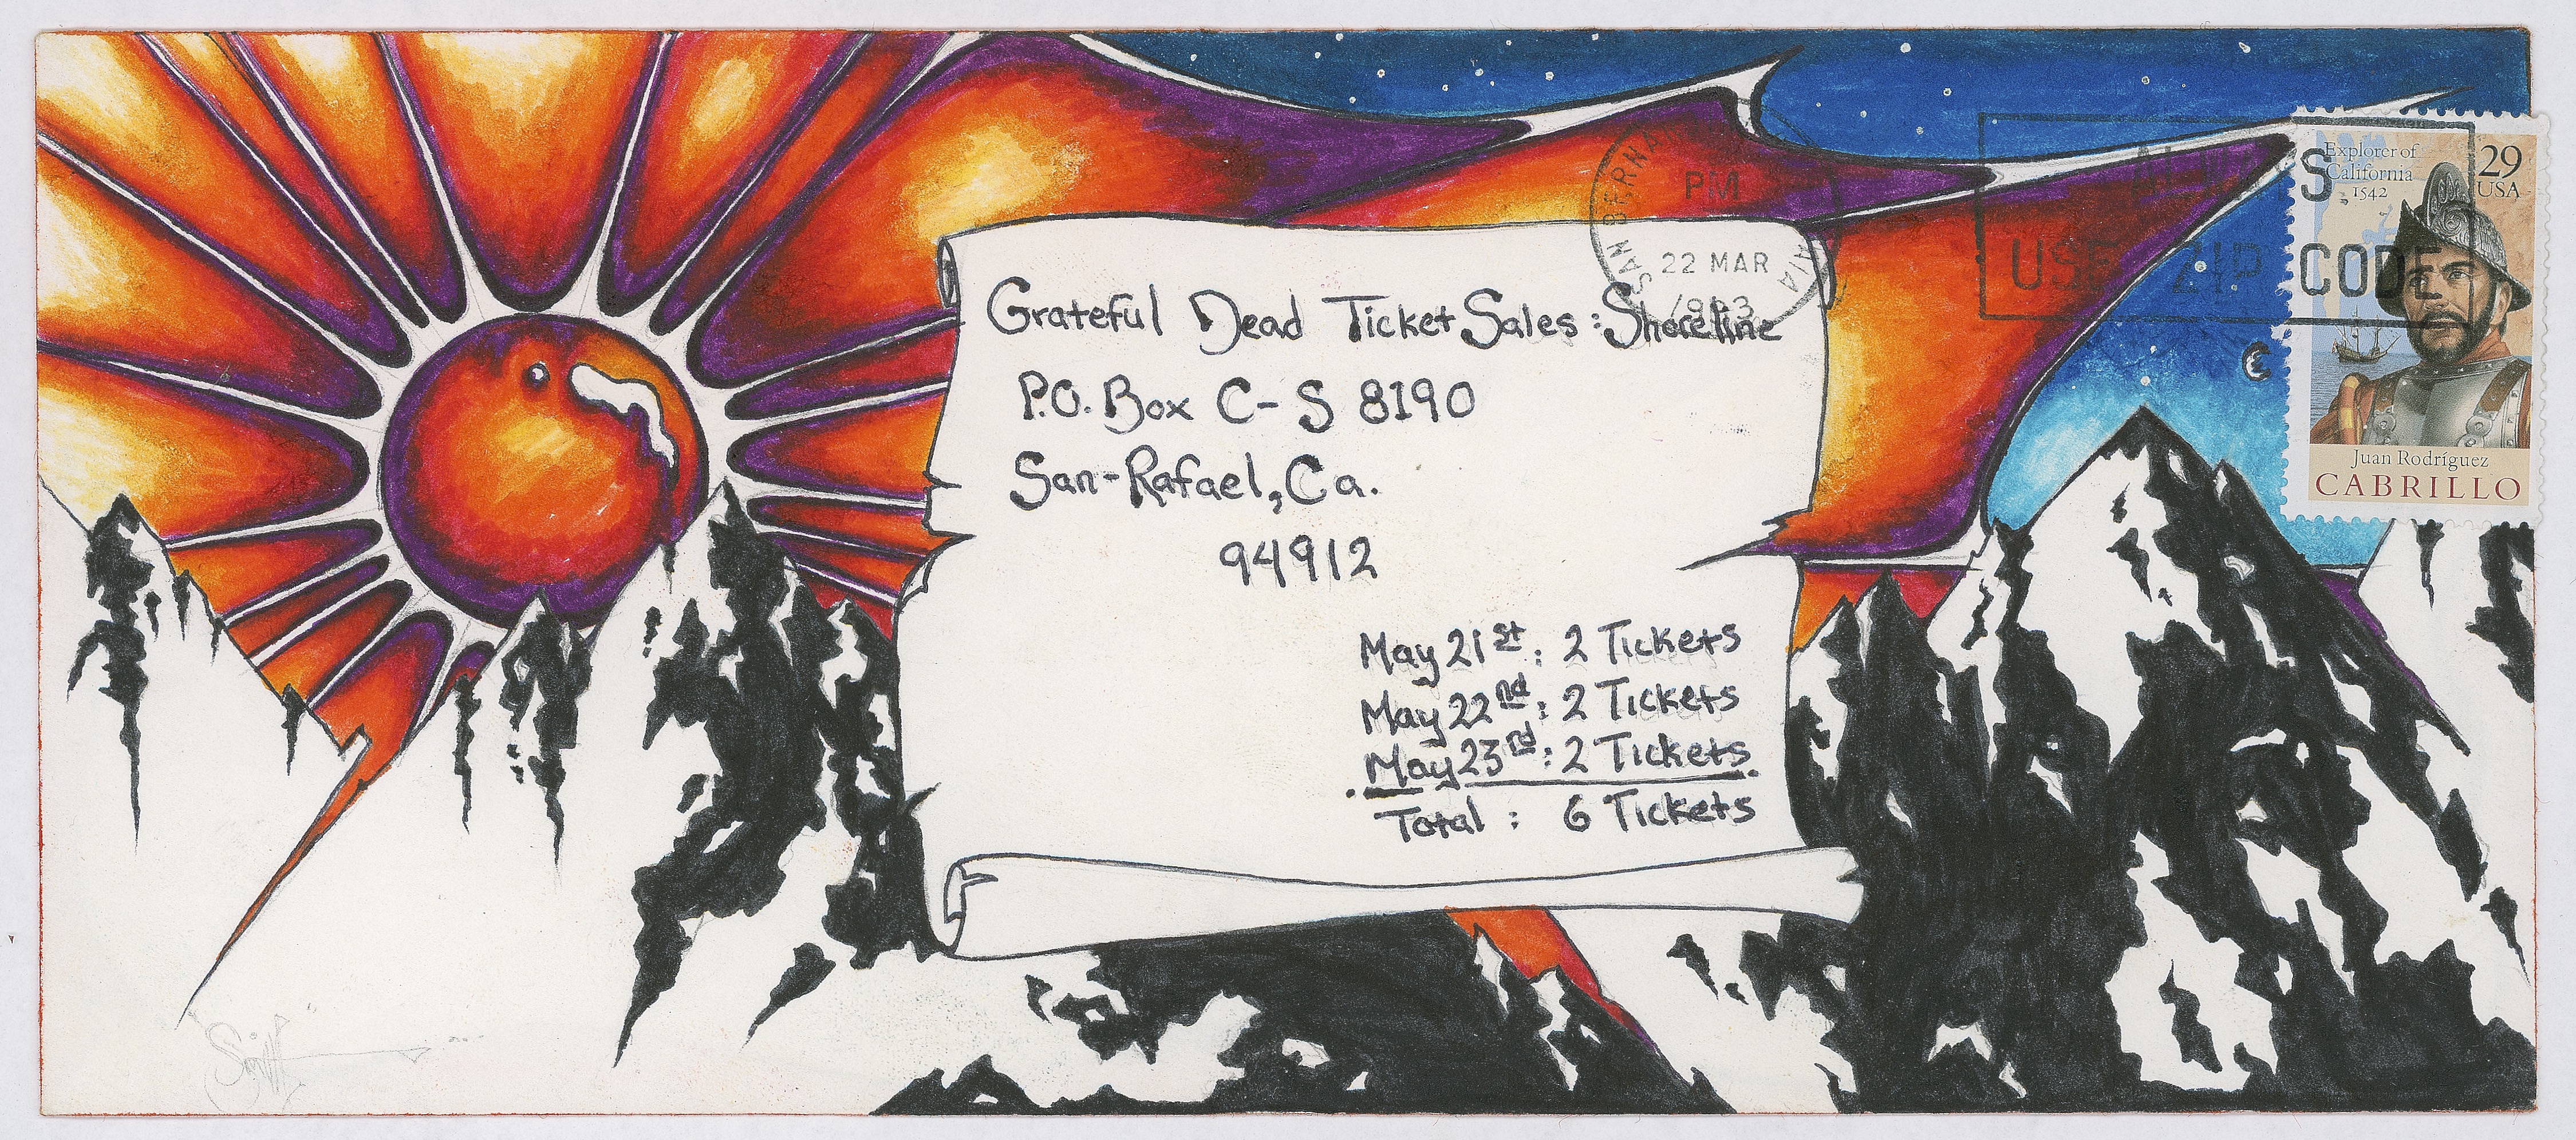 Grateful Dead Ticket Sales: Shoreline
P.O. Box C-S 8190
San-Rafael, Ca.
94912
May 21st: 2 Tickets
May 22nd: 2 Tickets
May 23rd: 2 Tickets
Total: 6 Tickets
PM
22 MAR
1993
USE ZIP CODE
Explorer of
California
1542
29
USA
Juan Rodríguez
CABRILLO